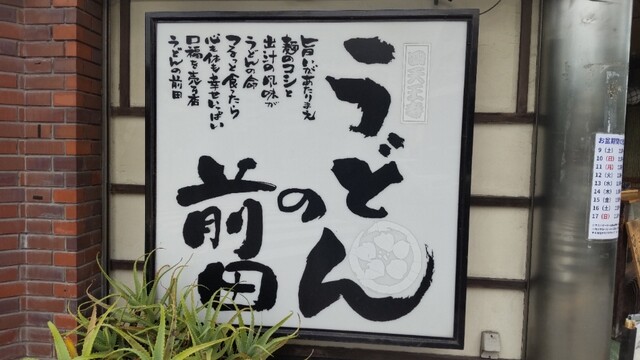 うどん
の
前田
四天王寺
旨いがあたりまえ
麺のコシと
出汁の風味が
うどんの命
つるっと食ったら
心も体も幸せいっぱい
口福を売る店
うどんの前田
お盆期間
9 (土)
10 (日)
11 (月)
12 (火)
13 (水)
14 (木)
15 (金)
16 (土)
17 (日)